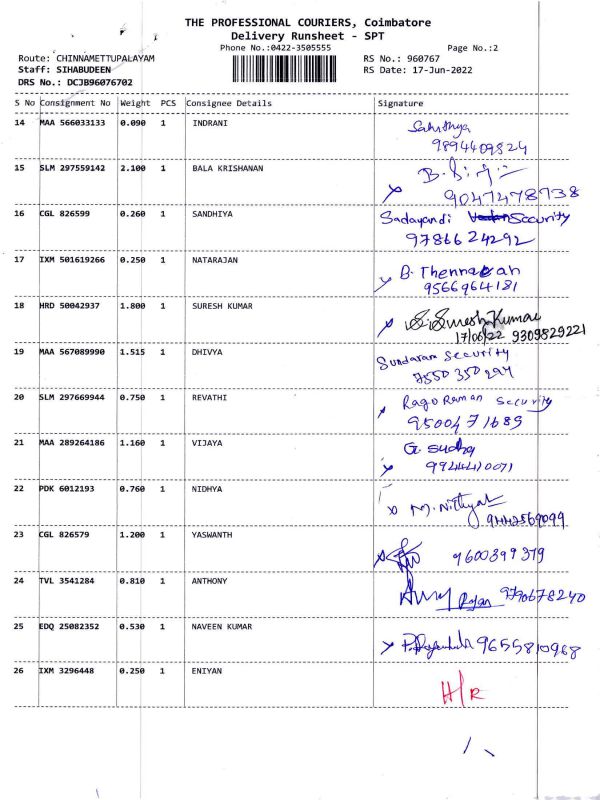 THE PROFESSIONAL COURIERS, Coimbatore
Delivery Runsheet - SPT
Phone No.:0422-3505555 Page No.:2
Route: CHINNAMETTUPALAYAM RS No.: 960767
Staff: SIHABUDEEN RS Date: 17-Jun-2022
DRS No.: DCJB96076702
S No Consignment No Weight PCS Consignee Details Signature
14 MAA 566033133 0.090 1 INDRANI
9894409824
15 SLM 297559142 2.100 1 BALA KRISHANAN
9047478738
16 CGL 826599 0.260 1 SANDHIYA Sadayandi Security
9786624292
17 IXM 501619266 0.250 1 NATARAJAN
9566964181
18 HRD 50042937 1.800 1 SURESH KUMAR S. Suresh Kumar
17/06/22 9309829221
19 MAA 567089990 1.515 1 DHIVYA Sundaram Security
7550350297
20 SLM 297669944 0.750 1 REVATHI Rago Raman Security
9500471689
21 MAA 289264186 1.160 1 VIJAYA G. Sudha
9944410071
22 PDK 6012193 0.760 1 NIDHYA M. Nithya
9442569099
23 CGL 826579 1.200 1 YASWANTH 9600399379
24 TVL 3541284 0.810 1 ANTHONY 9790678240
25 EDQ 25082352 0.530 1 NAVEEN KUMAR 9655810968
26 IXM 3296448 0.250 1 ENIYAN H/R